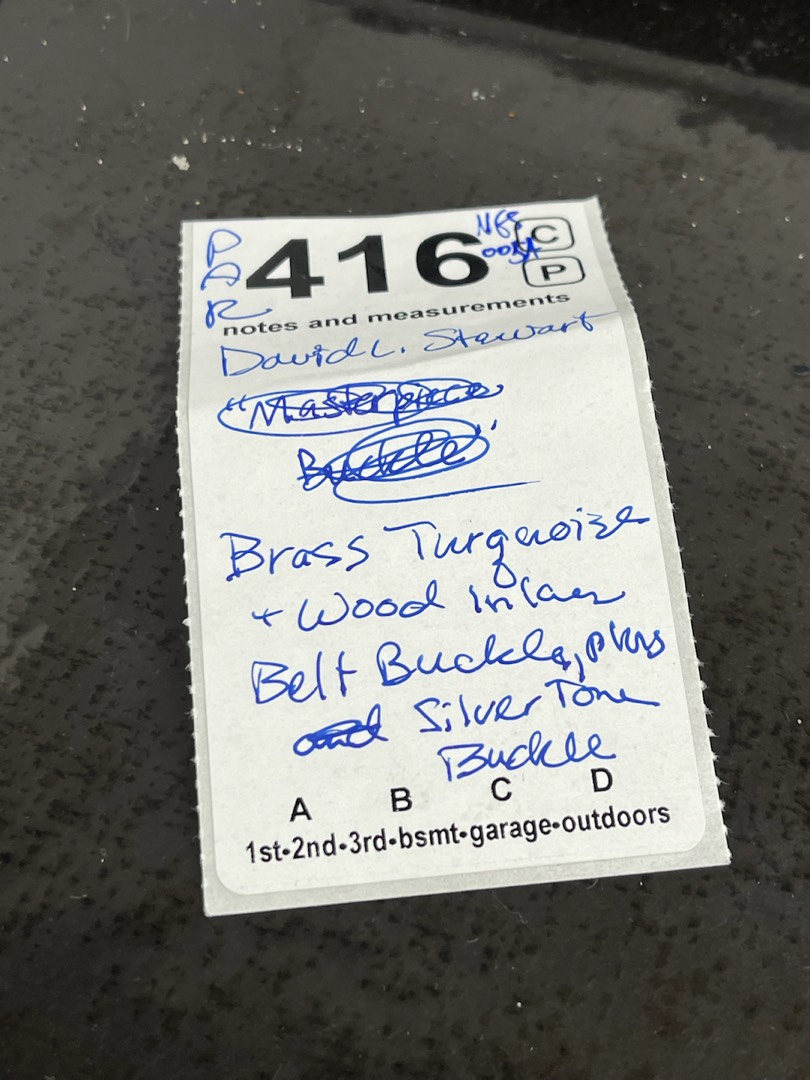 PAR
416
C
P
notes and measurements
David L. Stewart
"Masterpiece
Buckle"
Brass Turquoise
+ Wood Inlay
Belt Buckle, plus
and Silver Tone
Buckle
A B C D
1st•2nd•3rd•bsmt•garage•outdoors